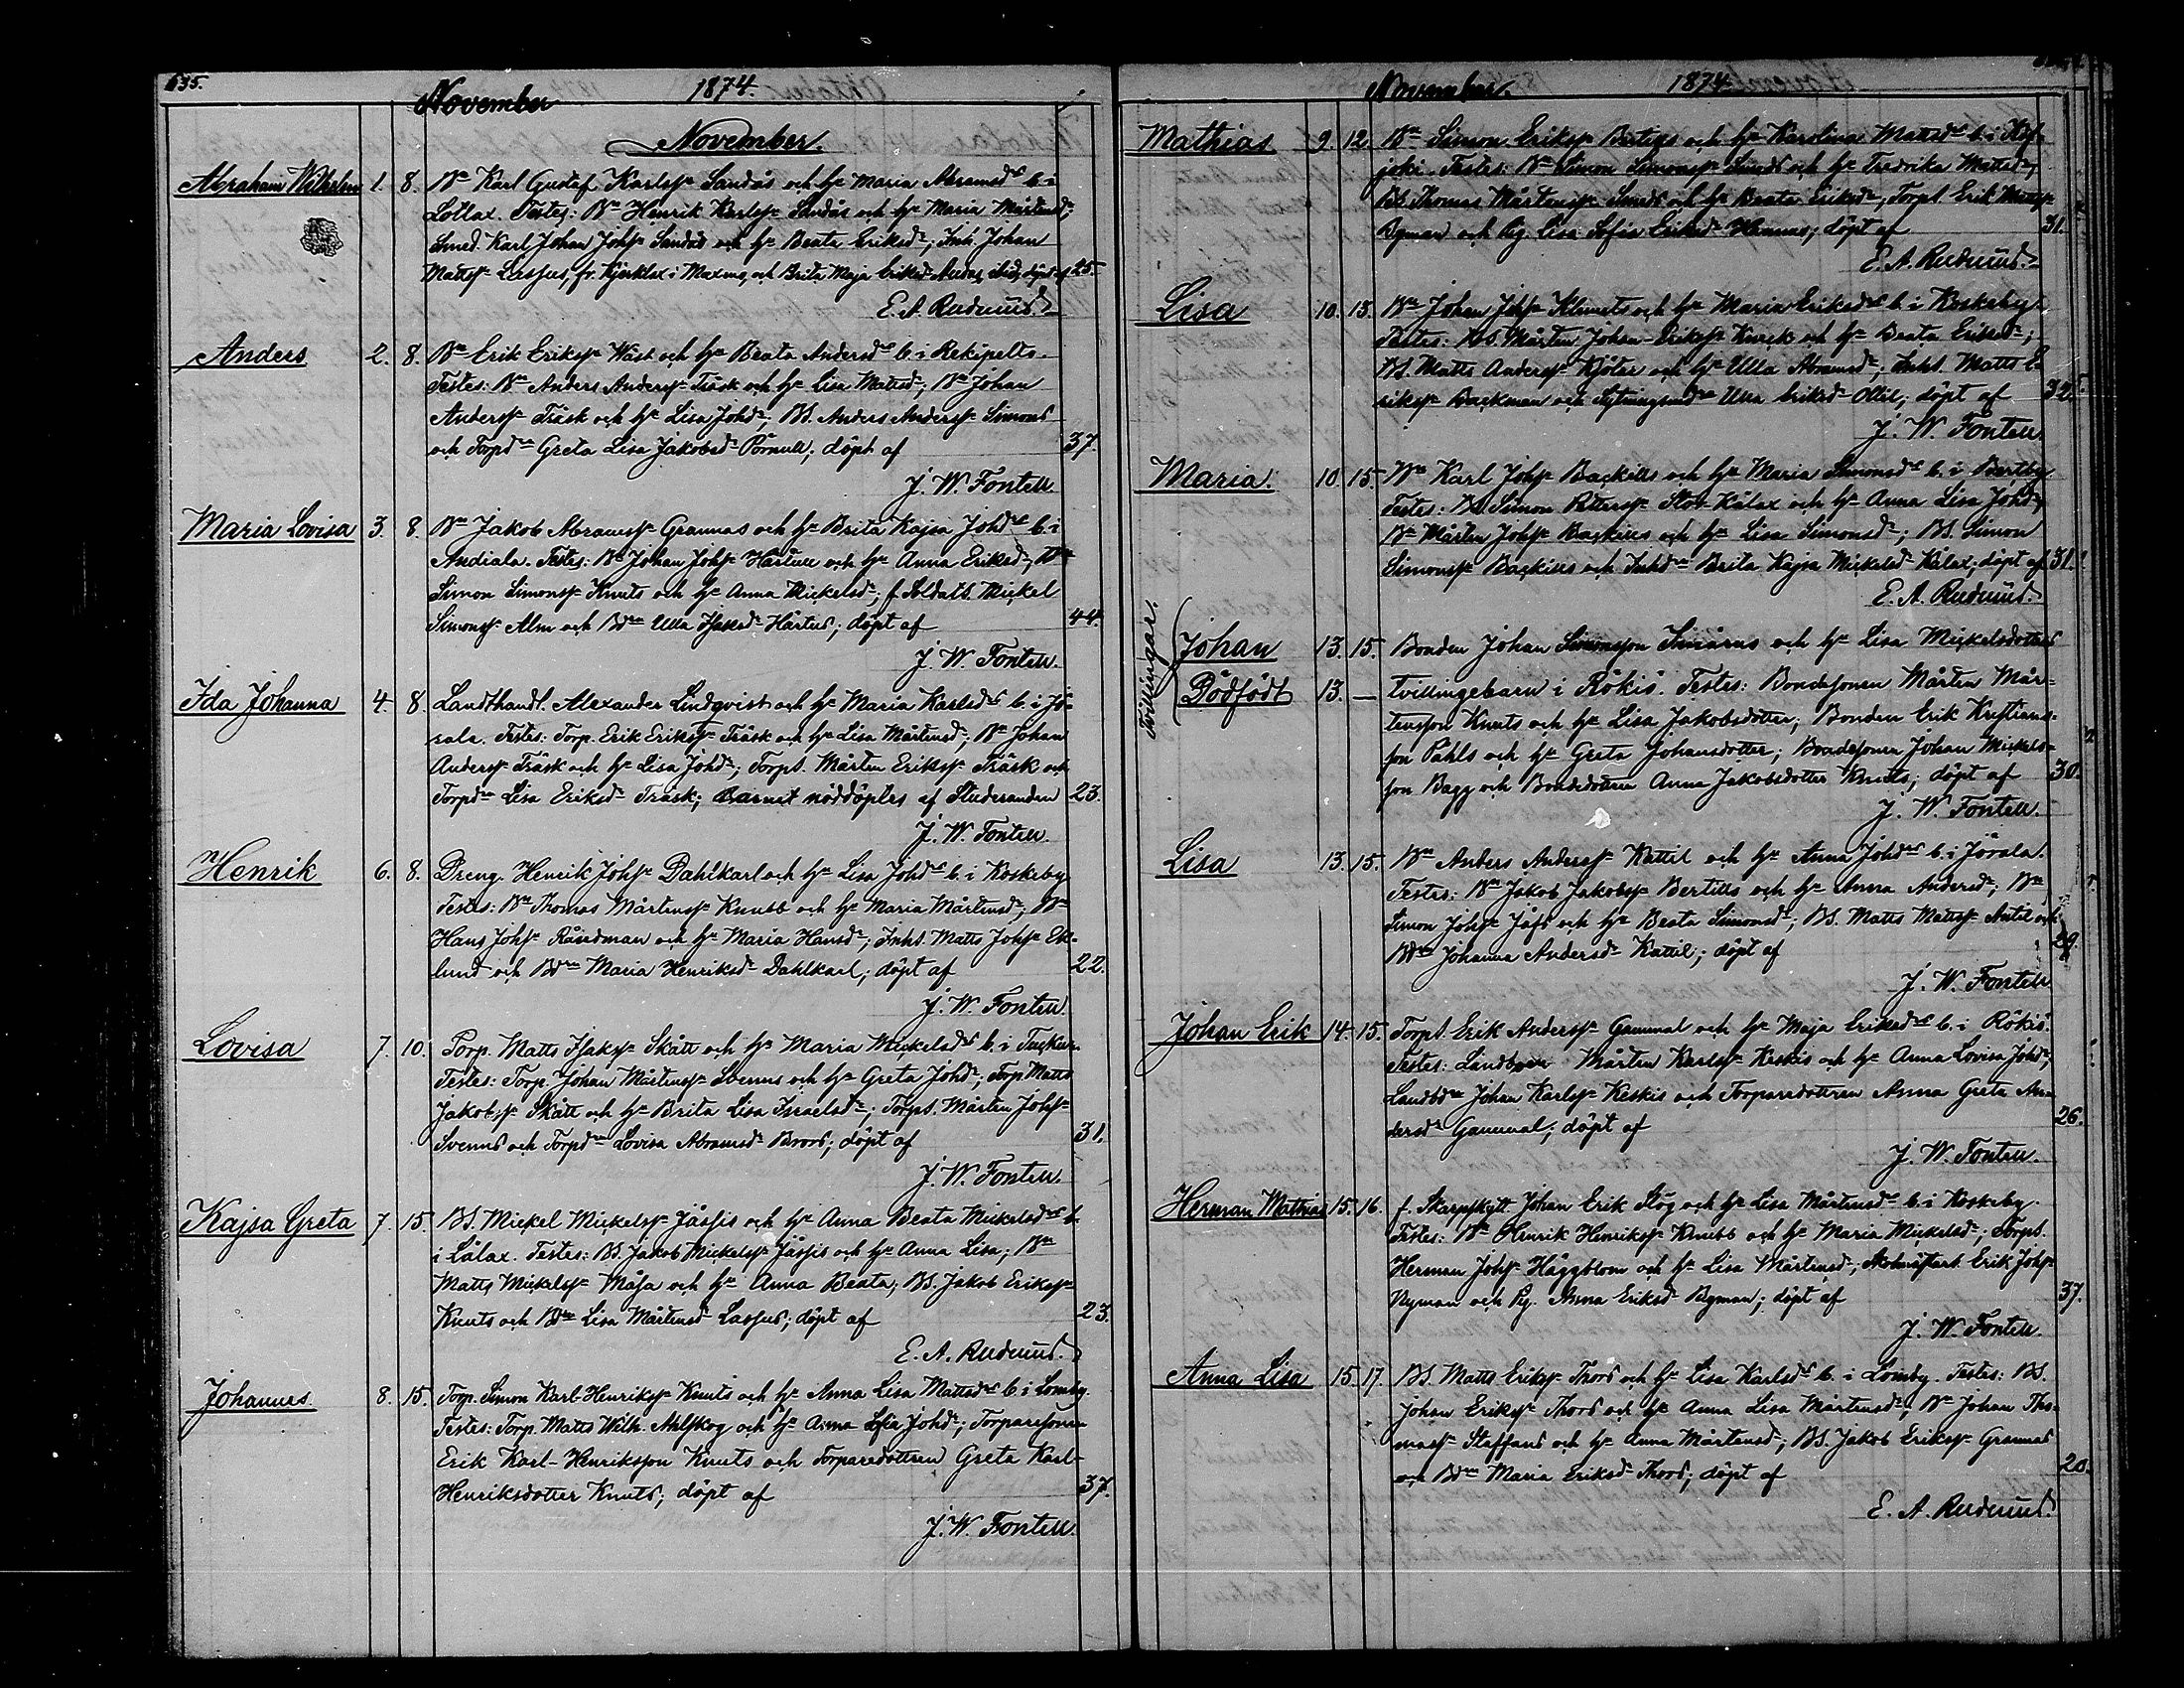 635.
November 1874.
November.
Abraham Wilhelm 1. 8. Bn Karl Gustaf Karlss. Sandås och h. Maria Abramsdr b. i
Lollax. Testes: Bn Henrik Karlss. Sandås och h. Maria Mårtensd.;
Smed. Karl Johan Johss. Sandås och h. Beata Eriksd.; Inh. Johan
Mattss. Lassus, fr. Kjerklax i Maxmo, och Brita Maja Eriksd. döpt af 25.
E. A. Rudnäs
Anders 2. 8. Bn Erik Erikss. Wäst och h. Beata Andersdr b. i Rekipelto.
Testes: Bn Anders Anderss. Träsk och h. Lisa Mattsd.; Bn Johan
Anderss. Träsk och h. Lisa Johd.; BS. Anders Anderss. Simons
och Torpdn Greta Lisa Jakobsd. Pörnull; döpt af 37.
J. W. Fontell.
Maria Lovisa 3. 8. Bn Jakob Abramss. Grannas och h. Brita Kajsa Johdr b. i
Andiala. Testes: Bn Johan Johss. Hartull och h. Anna Eriksd.; Bn
Simon Simonss. Knuts och h. Anna Mickelsd.; f. Soldats. Mickel
Simonss. Alm och Bdn Ulla Isaksd. Härtus; döpt af 44.
J. W. Fontell.
Ida Johanna 4. 8. Landthandl. Alexander Lindqvist och h. Maria Karlsdr b. i Jö-
rala. Testes: Torp. Erik Erikss. Träsk och h. Lisa Mårtensd.; Bn Johan
Anderss. Träsk och h. Lisa Johd.; Torps. Mårten Erikss. Träsk och
Torpdn Lisa Eriksd. Träsk; Barnet nöddöptes af Studeranden 23.
J. W. Fontell.
Henrik 6. 8. Dreng. Henrik Johss. Dahlkarl och h. Lisa Johdr b. i Koskeby.
Testes: Bn Thomas Mårtenss. Knubb och h. Maria Mårtensd.; Bn
Hans Johss. Rändman och h. Maria Hansd.; Inhs. Matts Johss. Ek-
lund och Bdn Maria Henriksd. Dahlkarl; döpt af 22.
J. W. Fontell.
Lovisa 7. 10. Torp. Matts Isakss. Skått och h. Maria Mickelsdr b. i Tuckur.
Testes: Torp. Johan Mårtenss. Svenns och h. Greta Johd.; Torp. Matts
Jakobss. Skått och h. Brita Lisa Israelsd.; Torps. Mårten Johss.
Svenns och Torpdn Lovisa Abramsd. Brors; döpt af 31.
J. W. Fontell.
Kajsa Greta 7. 15. BS. Mickel Mickelss. Jässis och h. Anna Beata Mickelsdr b.
i Lålax. Testes: BS. Jakob Mickelss. Jässis och h. Anna Lisa; Bn
Matts Mickelss. Måsa och h. Anna Beata; BS. Jakob Erikss.
Knuts och Bdn Lisa Mårtensd. Lassus; döpt af 23.
E. A. Rudnäs.
Johannes 8. 15. Torp. Simon Karl-Henrikss. Knuts och h. Anna Lisa Mattsdr b. i Lomby.
Testes: Torp. Matts Wilh. Ahlskog och h. Anna Sofia Johd.; Torparesonen
Erik Karl-Henriksson Knuts och Torparedottren Greta Karl-
Henriksdotter Knuts; döpt af 37.
J. W. Fontell.
November. 1874.
Mathias 9. 12. Bn Simon Erikss. Bertils och h. Karolina Mattsdr b. i Kef-
joki. Testes: Bn Simon Simonss. Smeds och h. Fredrika Mattsd.;
BS. Thomas Mårtenss. Smeds och h. Beata Eriksd.; Torps. Erik Mattss.
Byman och Pig. Lisa Sofia Eriksd. Hannus; döpt af 31.
E. A. Rudnäs.
Lisa 10. 15. Bn Johan Johss. Klemets och h. Maria Eriksdr b. i Koskeby.
Testes: BS. Mårten Johan-Erikss. Knuck och h. Beata Eriksd.;
BS. Matts Anderss. Kjölar och h. Ulla Abramsd.; Inhs. Matts E-
rikss. Backman och Ulla Eriksd. Ollil; döpt af 32.
J. W. Fontell.
Maria. 10. 15. Bn Karl Johss. Backills och h. Maria Simonsdr b. i Bertby.
Testes: BS. Simon Petterss. Stor Kålax och h. Anna Lisa Johd.;
Bn Mårten Johss. Backills och h. Lisa Simonsd.; BS. Simon
Simonss. Backills och Inhdn Brita Kajsa Mickelsd. Kålax; döpt af 31.
E. A. Rudnäs.
Tvillingar.
Johan 13. 15. Bonden Johan Simonsson Smärus och h. Lisa Mickelsdotters
Dödfödt 13. — tvillingebarn i Rökiö. Testes: Bondesonen Mårten Mår-
tensson Knuts och h. Lisa Jakobsdotter; Bonden Erik Kristians-
son Påhls och h. Greta Johansdotter; Bondesonen Johan Mickels-
son Bagg och Bondedottren Anna Jakobsdotter Knuts; döpt af 30.
J. W. Fontell.
Lisa 13. 15. Bn Anders Anderss. Kattil och h. Anna Johdr b. i Jörala.
Testes: Bn Jakob Jakobss. Bertills och h. Anna Andersd.; Bn
Simon Johss. Jåfs och h. Beata Simonsd.; BS. Matts Mattss. Antil och
Bdn Johanna Andersd. Kattil; döpt af 29.
J. W. Fontell
Johan Erik 14. 15. Torps. Erik Anderss. Gammal och h. Maja Eriksdr b. i Rökiö.
Testes: Landbon Mårten Karlss. Keskis och h. Anna Lovisa Johd.;
Landbdn Johan Karlss. Keskis och Torparedottren Anna Greta An-
dersd. Gammal; döpt af 26.
J. W. Fontell.
Herman Mathias 15. 16. f. Skarpskytt. Johan Erik Slög och h. Lisa Mårtensdr b. i Koskeby.
Testes: Bn Henrik Henrikss. Knubb och h. Maria Mickelsd.; Torps.
Herman Johss. Häggblom och h. Lisa Mårtensd.; Erik Johss.
Nyman och Pig. Anna Eriksd. Byman; döpt af 37.
J. W. Fontell.
Anna Lisa 15. 17. BS. Matts Erikss. Thors och h. Lisa Karlsdr b. i Lomby. Testes: BS.
Johan Erikss. Thors och h. Anna Lisa Mårtensd.; Bn Johan Tho-
mass. Staffans och h. Anna Mårtensd.; BS. Jakob Erikss. Grannas
och Bdn Maria Eriksd. Thors; döpt af 20.
E. A. Rudnäs.